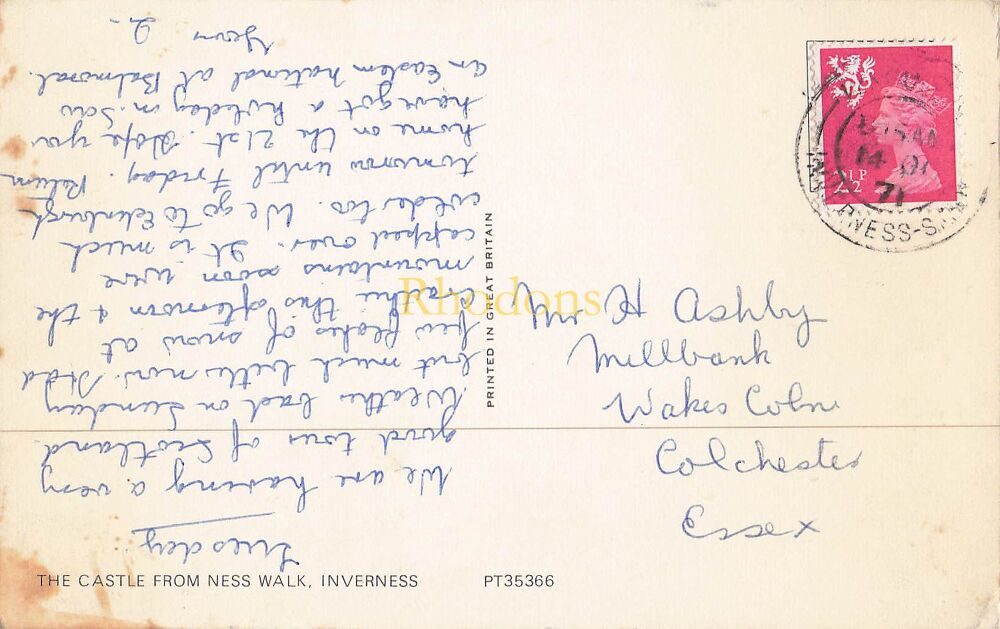 Tuesday.
We are having a very
good tour of Scotland.
Weather bad on Sunday
but much better now. Had
few flakes of snow at
Crathie this afternoon & the
mountains soon were
capped over. It is much
colder too. We go to Edinburgh
tomorrow until Friday. Return
home on the 21st. Hope you
have got a holiday in. Saw
an Eastern National at Balmoral.
Yours
Mr H Ashby
Millbank
Wakes Colne
Colchester
Essex
2½P
14
71
INVERNESS-S
PRINTED IN GREAT BRITAIN
Rhodons
THE CASTLE FROM NESS WALK, INVERNESS PT35366